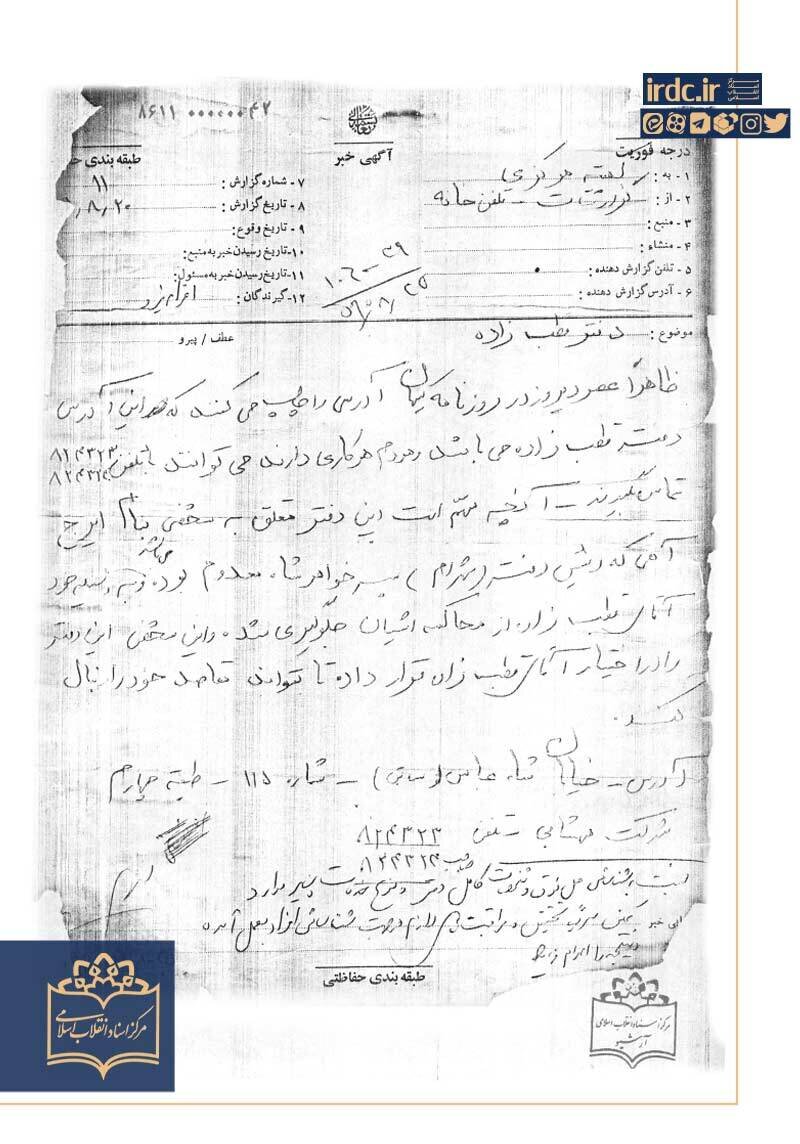 irdc.ir
مرکز اسناد انقلاب اسلامی
۸۶۱۱ ۰۰۰۰۰۰۴۲
آگهی خبر
درجه فوریت
طبقه بندی
۱- به : کمیته مرکزی
۲- از : گزارشات - تلفن خانه
۳- منبع :
۴- منشاء :
۵ - تلفن گزارش دهنده :
۶ - آدرس گزارش دهنده :
۷- شماره گزارش : ۱۱
۸ - تاریخ گزارش : ۸٫۲۰
۹ - تاریخ وقوع :
۱۰- تاریخ رسیدن خبر به منبع:
۱۱- تاریخ رسیدن خبر به مسئول:
۱۲- گیرندگان :
۱۰۶-۳۹
۵۹/۸/۲۵
موضوع : دفتر قطب زاده
عطف / پیرو
ظاهراً عصر دیروز در روزنامه کیهان آدرسی را چاپ می کنند که این آدرس
دفتر قطب زاده می باشد و مردم هر کاری دارند می توانند با تلفن ۸۲۴۳۲۳
۸۲۴۳۲۴
تماس بگیرند - آنچه مهم است این دفتر متعلق به شخصی بنام ایرج
که رئیس دفتر (شهرام) پسر خواهر شاه معدوم بوده و به وسیله خود
آقای قطب زاده از محاکمه ایشان جلوگیری شده و این شخص این دفتر
را در اختیار آقای قطب زاده قرار داده تا بتواند مقاصد خود را دنبال
کند.
آدرس - خیابان شاه عباس (سابق) - شماره ۱۱۵ - طبقه چهارم
شرکت مهستایی تلفن ۸۲۴۳۲۳
۸۲۴۳۲۴
نسبت به شناسائی محل فوق و کامل دفتر و
تحقیق و مراقبت های لازم و جهت شناسائی افراد بعمل آمده
نتیجه را اعلام
طبقه بندی حفاظتی
مرکز اسناد انقلاب اسلامی
مرکز اسناد انقلاب اسلامی
آرشیو